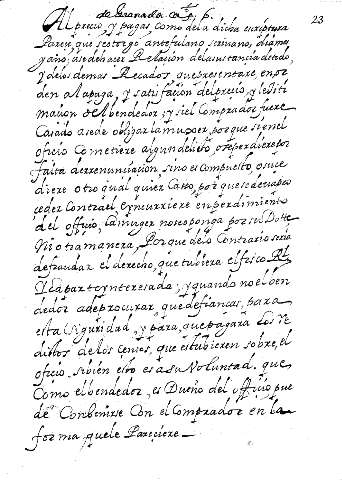 de Granada
23
Al precio, y pagas como de la dicha escriptura
Pareze, que se otorgo ante fulano scrivano, dia, mes,
y año; a se de hacer Relacion de la sustancia de todo,
y de los demas Recados, que presentare en or
den a la paga, y satisfacion del precio, y lexiti
macion del Bendedor, y si el Comprador fuere
Casado a se de obligar la muxer, porque si en el
oficio Cometiere algun delito, o se perdiere por
falta de rrenunciacion, sino es Compuesto, o suce
diere otro qual quier Casso, por que se de
ceder Contra el, e yncurriere en perdimiento
del officio, la muger no se oponga por su Dotte
Ni otra manera, Porque de lo Contrario seria
defraudar el derecho, que tubiera el fisco Rl.
V la parte ynteresada; y quando no el ben
dedor a de procurar que de fianças, para
esta siguridad, y para, que pagara los re
ditos de los Censos, que estubieren sobre, el
oficio, si bien esto es a su Voluntad, que
Como el bendedor, es Dueño del officio pue
de Combenirse Con el Comprador en la
forma que le Pareciere